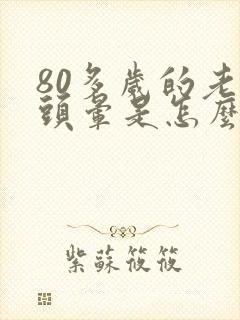 80多歲的老
頭暈是怎麼
紫蘇筱筱